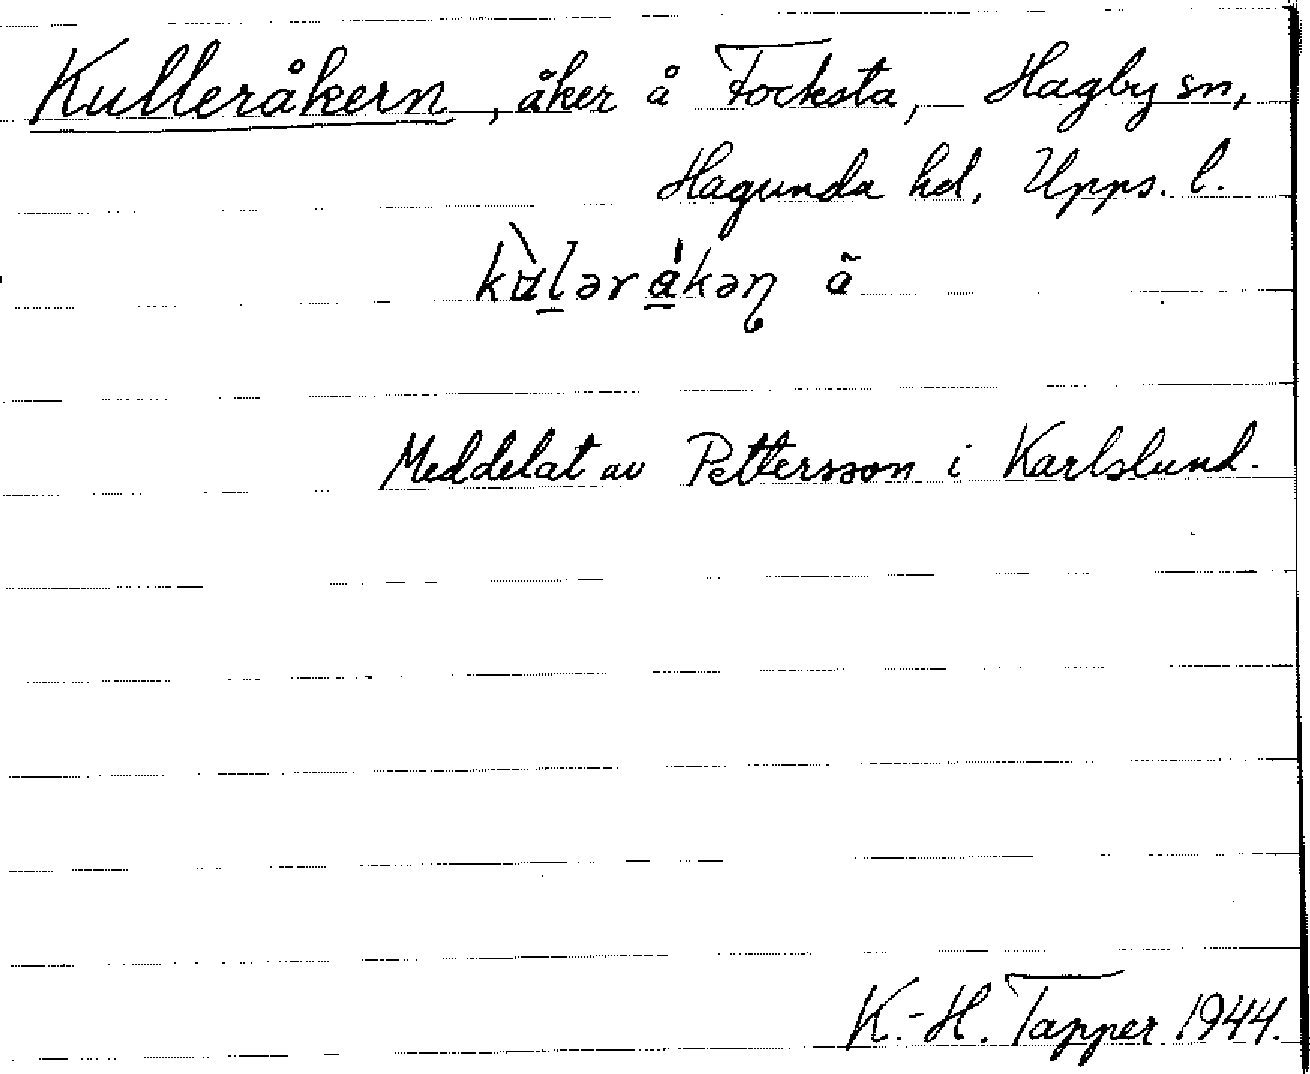 Kulleråkern, åker å Focksta, Hagby sn,
Hagunda hd, Upps. l.
Meddelat av Pettersson i Karlslund.
K.-H. Tapper 1944.